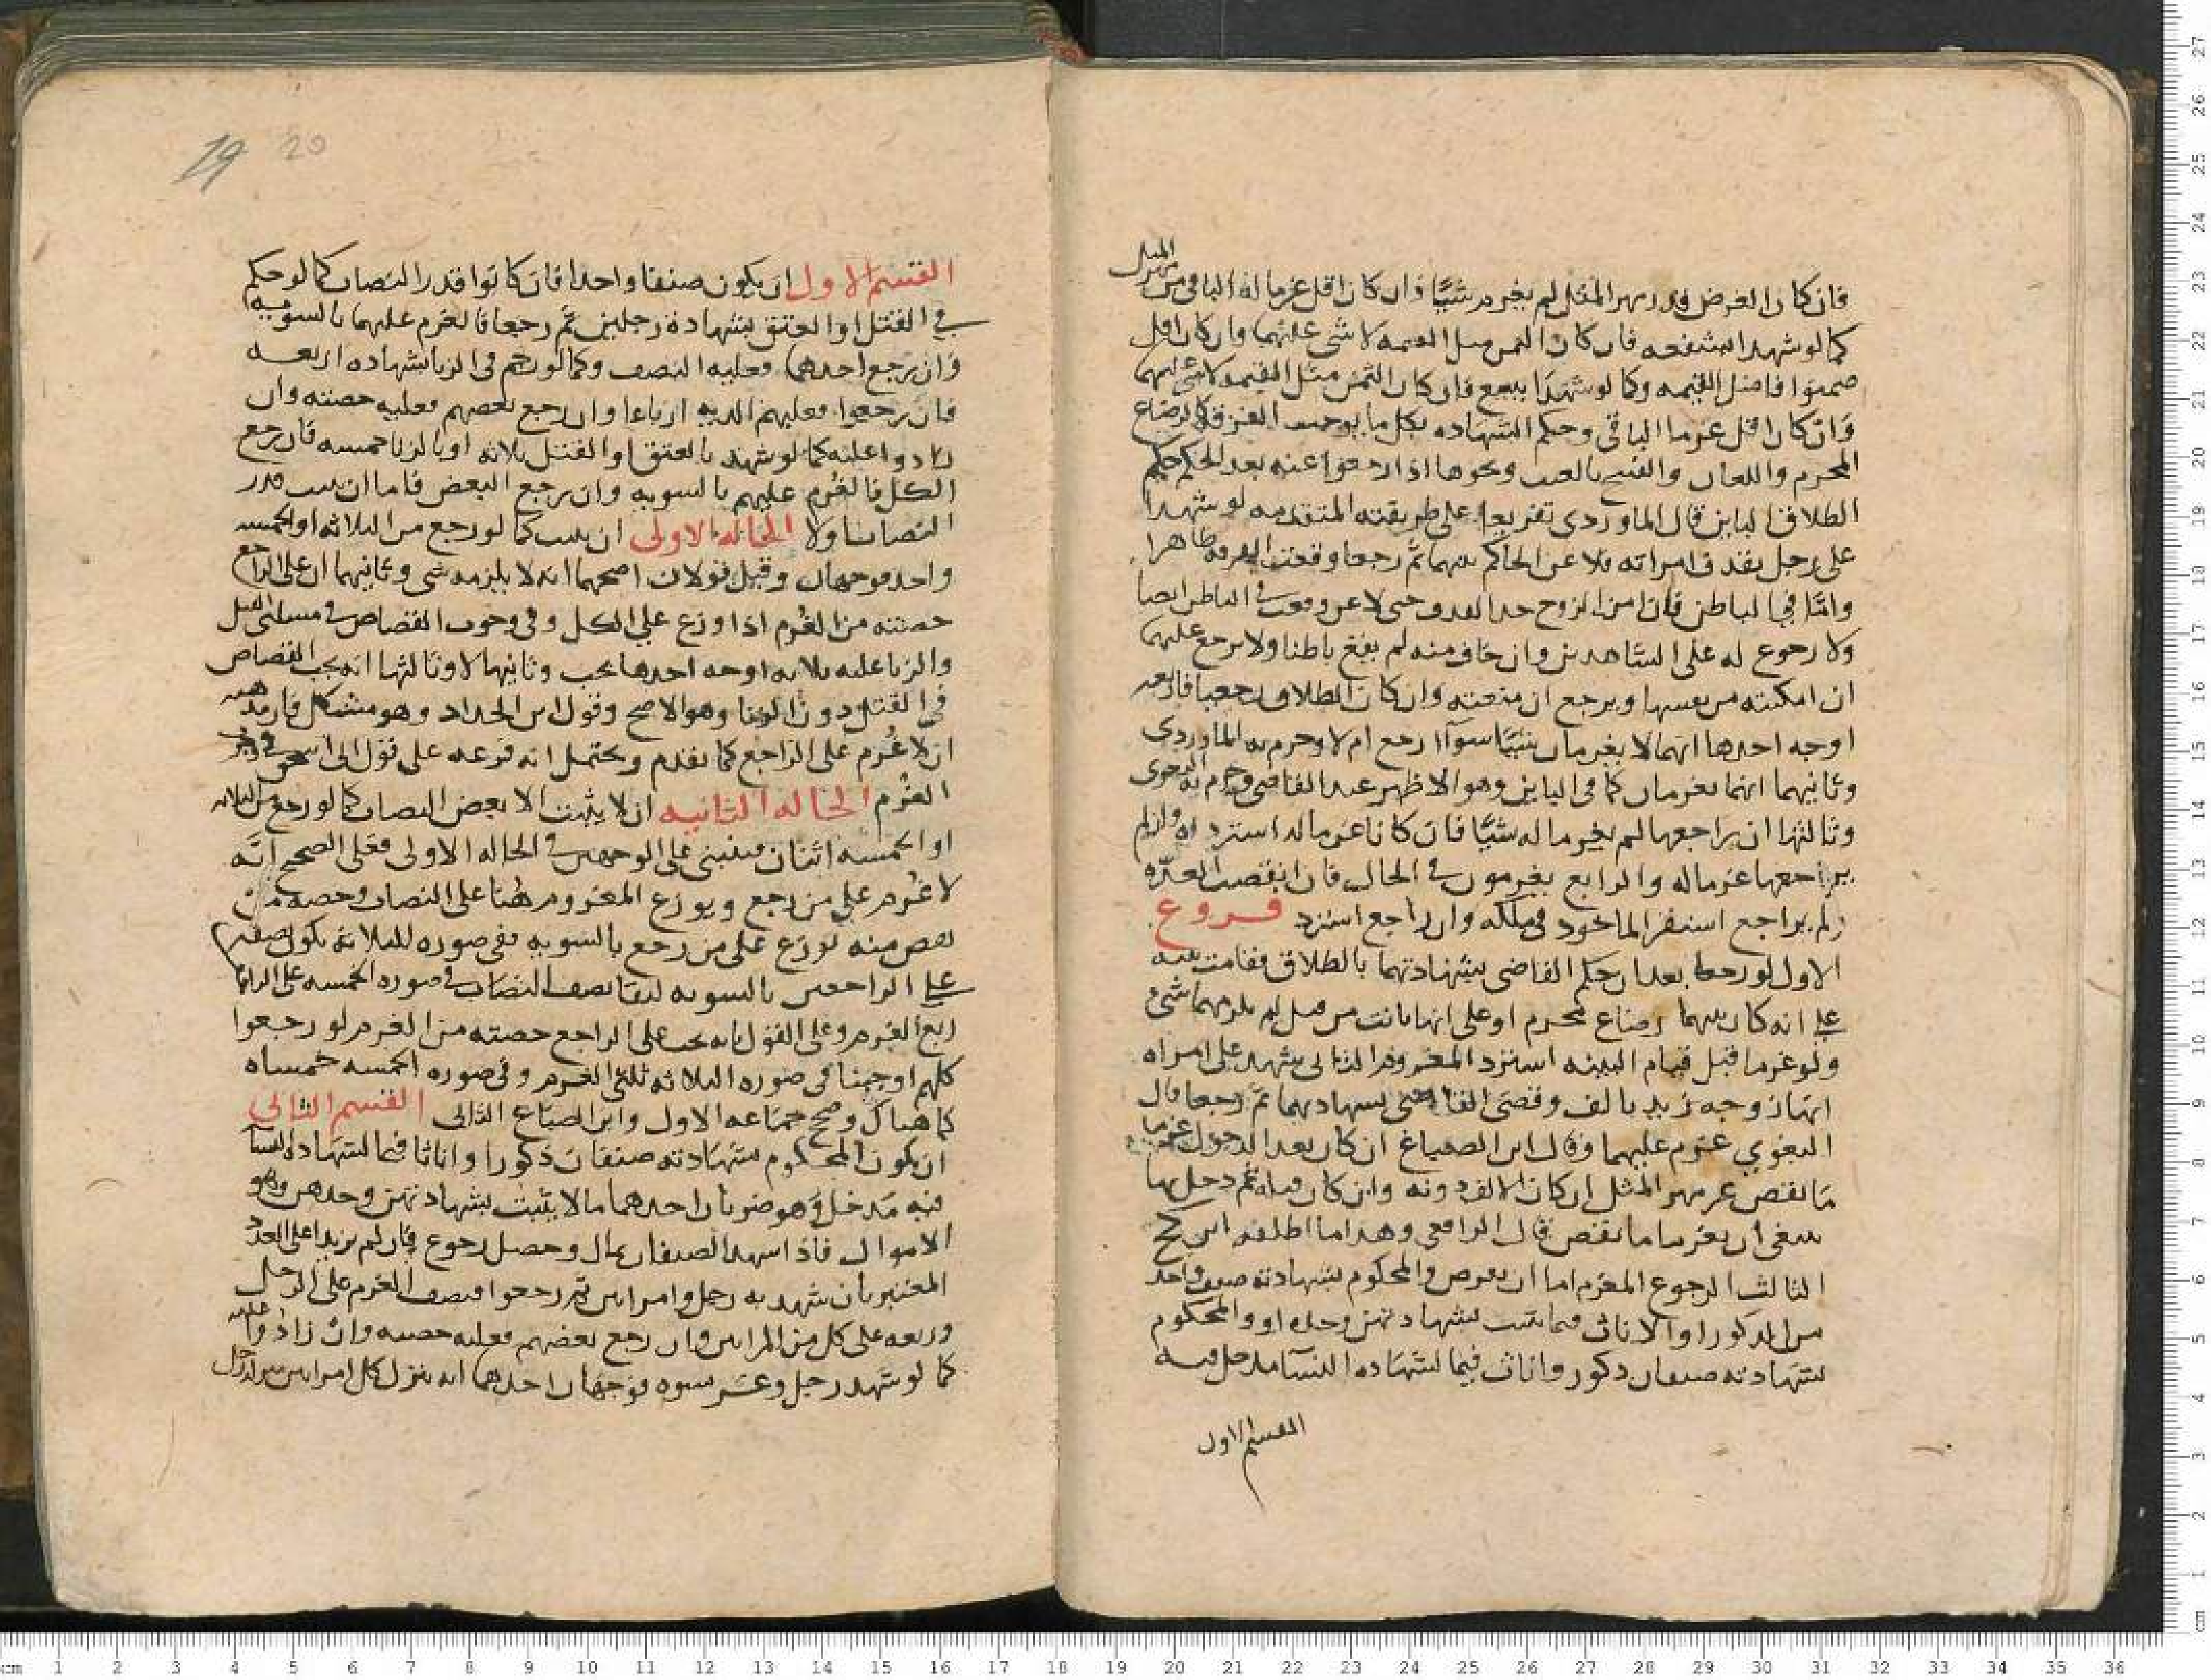 فان كان الفرض قدر مهر المثل لم يغرم شيًا وان كان اقل غرما له الباقي من مهر المثل
كما لو شهدا بشفعه فان كان الثمن مثل القيمه لا شي عليهما وان كان اقل
ضمنوا فاضل القيمه وكما لو شهدا ببيع فان كان الثمن مثل القيمه لا شي عليهما
وان كان اقل غرما الباقي وحكم الشهاده بكل ما يوجب الفرقه كالرضاع
المحرم واللعان والفسخ بالعيب ونحوها اذا رجعوا عنه بعد الحكم حكم
الطلاق الباين قال الماوردي تفريعا على طريقته المتقدمه لو شهدا
على رجل بقذف امراته فلاعن الحاكم بينهما ثم رجعا وقعت الفرقه ظاهرا
وامّا في الباطن فان امن الزوج حد القذف حتى لاعن وقعت في الباطن ايضا
ولا رجوع له على الشاهدين وان خاف منه لم يقع باطنا ولا يرجع عليهما
ان امكنته من نفسها ويرجع ان منعته وان كان الطلاق رجعيا فاربعه
اوجه احدها انهما لا يغرمان شيًا سوآ راجع ام لا وجزم به الماوردي
وثانيهما انهما يغرمان كما في الباين وهو الاظهر عند القاضي وجزم به البغوي
وثالثها ان راجعها لم يغرما له شيًا فان كانا غرما له استرداه وان لم
يراجعها غرما له والرابع يغرمون في الحال فان انقضت العدّه
ولم يراجع استقر الماخوذ في ملكه وان راجع استرد فروع
الاول لو رجعا بعد ان حكم القاضي بشهادتهما بالطلاق فقامت بينه
على انه كان بينهما رضاع محرم او على انها بانت من قبل لم يلزمهما شي
ولو غرما قبل قيام البينه استردا المغروم الثاني شهد على امراه
انها زوجه زيد بالف وقضى القاضي بشهادتهما ثم رجعا قال
البغوي غرم عليهما وقال ابن الصباغ ان كان بعد الدخول غرما
ما نقص عن مهر المثل ان كان الالف دونه وان كان قبله ثم دخل بها
ينبغي ان يغرما ما نقص قال الرافعي وهذا ما اطلقه ابن كج
الثالث الرجوع المغرم اما ان يفرض والمحكوم بشهادته صنف واحد
من الذكور او الاناث فيما يثبت بشهادتهن وحده او والمحكوم
بشهادته صنفان ذكور واناث فيما لشهاده النسا مدخل فيه
القسم الاول
19 20
القسم الاول ان يكون صنفا واحدا فان كانوا قدر النصاب كما لو حكم
في القتل او العتق بشهادة رجلين ثم رجعا فالغرم عليهما بالسويه
وان رجع احدهما فعليه النصف وكما لو رجم في الزنا بشهاده اربعه
فان رجعوا فعليهم الديه ارباعا وان رجع بعضهم فعليه حصته وان
زادوا عليه كما لو شهد بالعتق او القتل ثلاثه او بالزنا خمسه فان رجع
الكل فالغرم عليهم بالسويه وان رجع البعض فاما ان يثبت قدر
النصاب اولا الحاله الاولى ان يثبت كما لو رجع من الثلاثه او الخمسه
واحد فوجهان وقيل قولان اصحهما انه لا يلزمه شي وثانيهما ان على الراجع
حصته من الغرم اذا وزع على الكل وفي وجوب القصاص في مسئلتي القتل
والزنا عليه ثلاثه اوجه احدها يجب وثانيها لا وثالثها انه يجب القصاص
في القتل دون الزنا وهو الاصح وقول ابن الحداد وهو مشكل فان مذهبه
ان لا غرم على الراجع كما تقدم ويحتمل انه فرعه على قول ابي اسحق في وجوب
الغرم الحاله الثانيه ان لا يثبت الا بعض النصاب كما لو رجع من الثلاثه
او الخمسه اثنان فينبني على الوجهين في الحاله الاولى فعلى الصحيح انّه
لا غرم على من رجع ويوزع المغروم هنا على النصاب وحصه من
نقص منه توزع على من رجع بالسويه ففي صوره الثلاثه يكون نصفه
على الراجعين بالسويه لبقا نصف النصاب في صوره الخمسه على الراجعين
ربع الغرم وعلى القول بانه يجب على الراجع حصته من الغرم لو رجعوا
كلهم اوجبنا في صوره الثلاثه ثلثي الغرم وفي صوره الخمسه خمساه
كما هناك وصحح جماعه الاول وابن الصباغ الثاني القسم الثاني
ان يكون المحكوم بشهادته صنفان ذكورا واناثا فيما لشهاده النسآ
فيه مدخل وهو ضربان احدهما ما لا يثبت بشهادتهن وحدهن وهو
الاموال فاذا شهد الصنفان بمال وحصل رجوع فان لم يزيدا على العدد
المعتبر بان شهد به رجل وامراتين ثم رجعوا فنصف الغرم على الرجل
وربعه على كل من المراتين وان رجع بعضهم فعليه حصته وان زادوا عليه
كما لو شهد رجل وعشر نسوه فوجهان احدهما انه ينزل كل امراتين منزله رجل